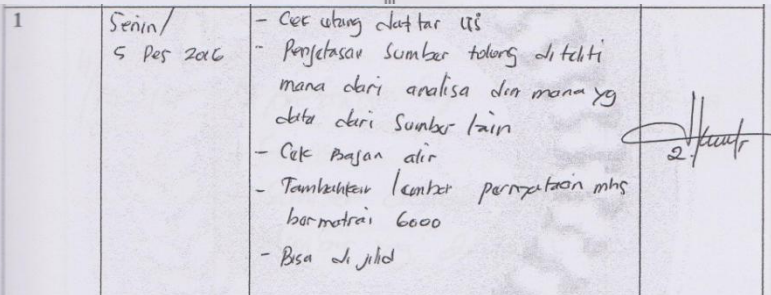 1
Senin/
5 Des 2016
- Cek ulang daftar isi
- Penjelasan sumber tolong di teliti
mana dari analisa dan mana yg
data dari sumber lain
- Cek Bagan alir
- Tambahkan lembar pernyataan mhs
bermatrai 6000
- Bisa di jilid
2.